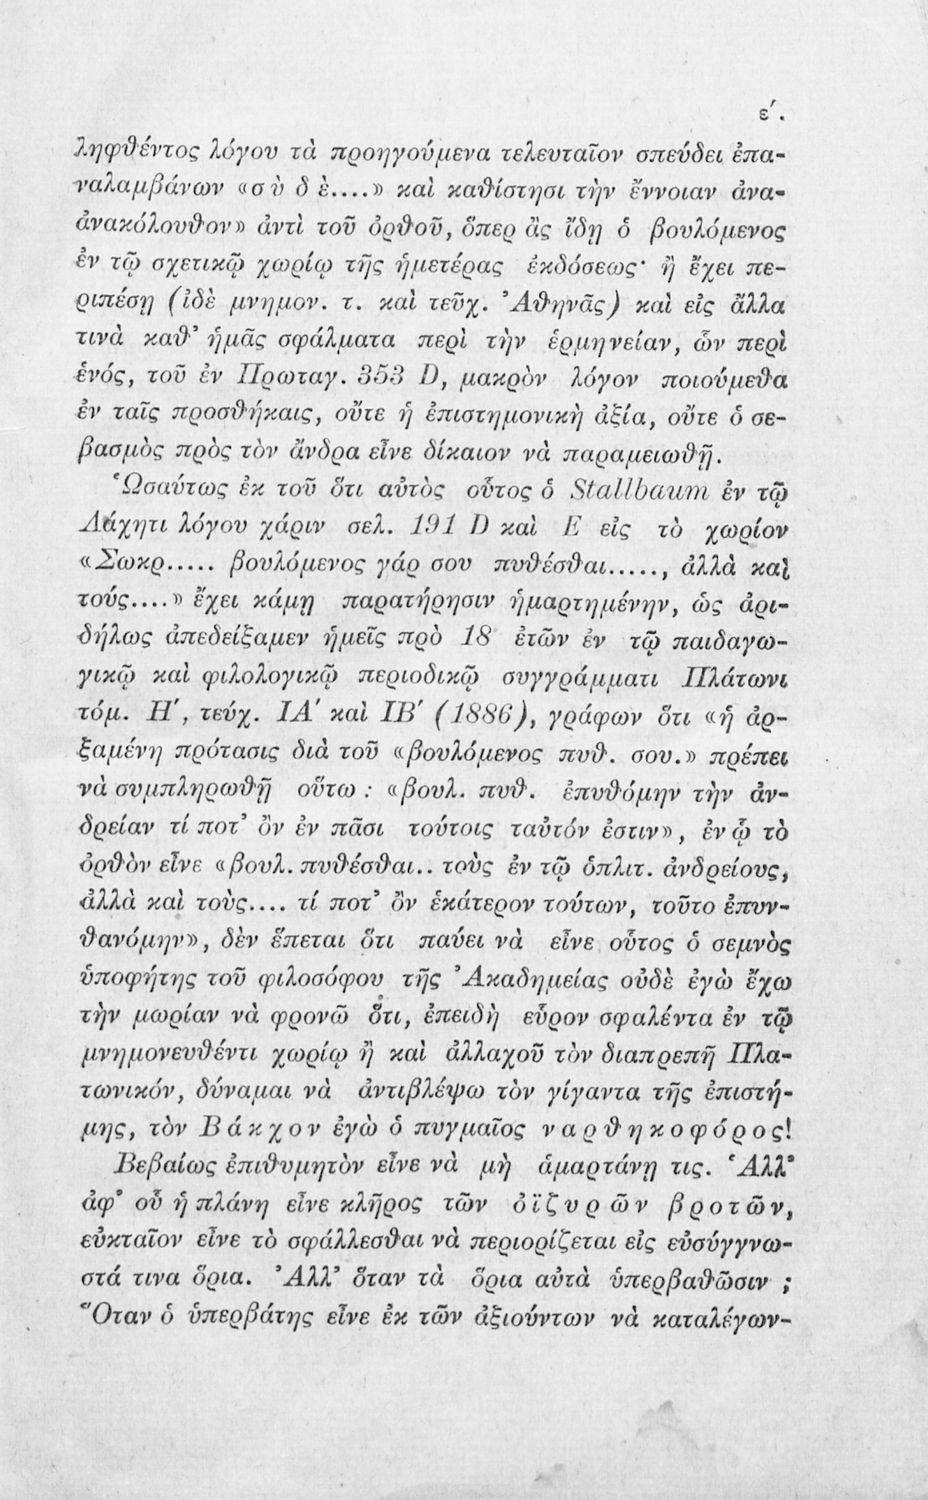 ε΄.
ληφθέντος λόγου τὰ προηγούμενα τελευταῖον σπεύδει ἐπα-
ναλαμβάνων «σὺ δὲ....» καὶ καθίστησι τὴν ἔννοιαν ἀνα-
ἀνακόλουθον» ἀντὶ τοῦ ὀρθοῦ, ὅπερ ἂς ἴδῃ ὁ βουλόμενος
ἐν τῷ σχετικῷ χωρίῳ τῆς ἡμετέρας ἐκδόσεως· ἢ ἔχει πε-
ριπέσῃ (ἰδὲ μνημον. τ. καὶ τεῦχ. Ἀθηνᾶς) καὶ εἰς ἄλλα
τινὰ καθ' ἡμᾶς σφάλματα περὶ τὴν ἑρμηνείαν, ὧν περὶ
ἑνός, τοῦ ἐν Πρωταγ. 353 D, μακρὸν λόγον ποιούμεθα
ἐν ταῖς προσθήκαις, οὔτε ἡ ἐπιστημονικὴ ἀξία, οὔτε ὁ σε-
βασμὸς πρὸς τὸν ἄνδρα εἶνε δίκαιον νὰ παραμειωθῇ.
Ὡσαύτως ἐκ τοῦ ὅτι αὐτὸς οὗτος ὁ Stallbaum ἐν τῷ
Λάχητι λόγου χάριν σελ. 191 D καὶ E εἰς τὸ χωρίον
«Σωκρ..... βουλόμενος γάρ σου πυθέσθαι....., ἀλλὰ καὶ
τούς....» ἔχει κάμῃ παρατήρησιν ἡμαρτημένην, ὡς ἀρι-
δήλως ἀπεδείξαμεν ἡμεῖς πρὸ 18 ἐτῶν ἐν τῷ παιδαγω-
γικῷ καὶ φιλολογικῷ περιοδικῷ συγγράμματι Πλάτωνι
τόμ. Η΄, τεύχ. ΙΑ΄ καὶ ΙΒ΄ (1886), γράφων ὅτι «ἡ ἀρ-
ξαμένη πρότασις διὰ τοῦ «βουλόμενος πυθ. σου.» πρέπει
νὰ συμπληρωθῇ οὕτω : «βουλ. πυθ. ἐπυθόμην τὴν ἀν-
δρείαν τί ποτ' ὂν ἐν πᾶσι τούτοις ταὐτόν ἐστιν», ἐν ᾧ τὸ
ὀρθὸν εἶνε «βουλ. πυθέσθαι.. τοὺς ἐν τῷ ὁπλιτ. ἀνδρείους,
ἀλλὰ καὶ τοὺς.... τί ποτ' ὂν ἑκάτερον τούτων, τοῦτο ἐπυν-
θανόμην», δὲν ἕπεται ὅτι παύει νὰ εἶνε οὗτος ὁ σεμνὸς
ὑποφήτης τοῦ φιλοσόφου τῆς Ἀκαδημείας οὐδὲ ἐγὼ ἔχω
τὴν μωρίαν νὰ φρονῶ ὅτι, ἐπειδὴ εὗρον σφαλέντα ἐν τῷ
μνημονευθέντι χωρίῳ ἢ καὶ ἀλλαχοῦ τὸν διαπρεπῆ Πλα-
τωνικόν, δύναμαι νὰ ἀντιβλέψω τὸν γίγαντα τῆς ἐπιστή-
μης, τὸν Βάκχον ἐγὼ ὁ πυγμαῖος ναρθηκοφόρος!
Βεβαίως ἐπιθυμητὸν εἶνε νὰ μὴ ἁμαρτάνῃ τις. Ἁλλ'
ἀφ' οὗ ἡ πλάνη εἶνε κλῆρος τῶν ὀϊζυρῶν βροτῶν,
εὐκταῖον εἶνε τὸ σφάλλεσθαι νὰ περιορίζεται εἰς εὐσύγγνω-
στά τινα ὅρια. Ἀλλ' ὅταν τὰ ὅρια αὐτὰ ὑπερβαθῶσιν ;
Ὅταν ὁ ὑπερβάτης εἶνε ἐκ τῶν ἀξιούντων νὰ καταλέγων-